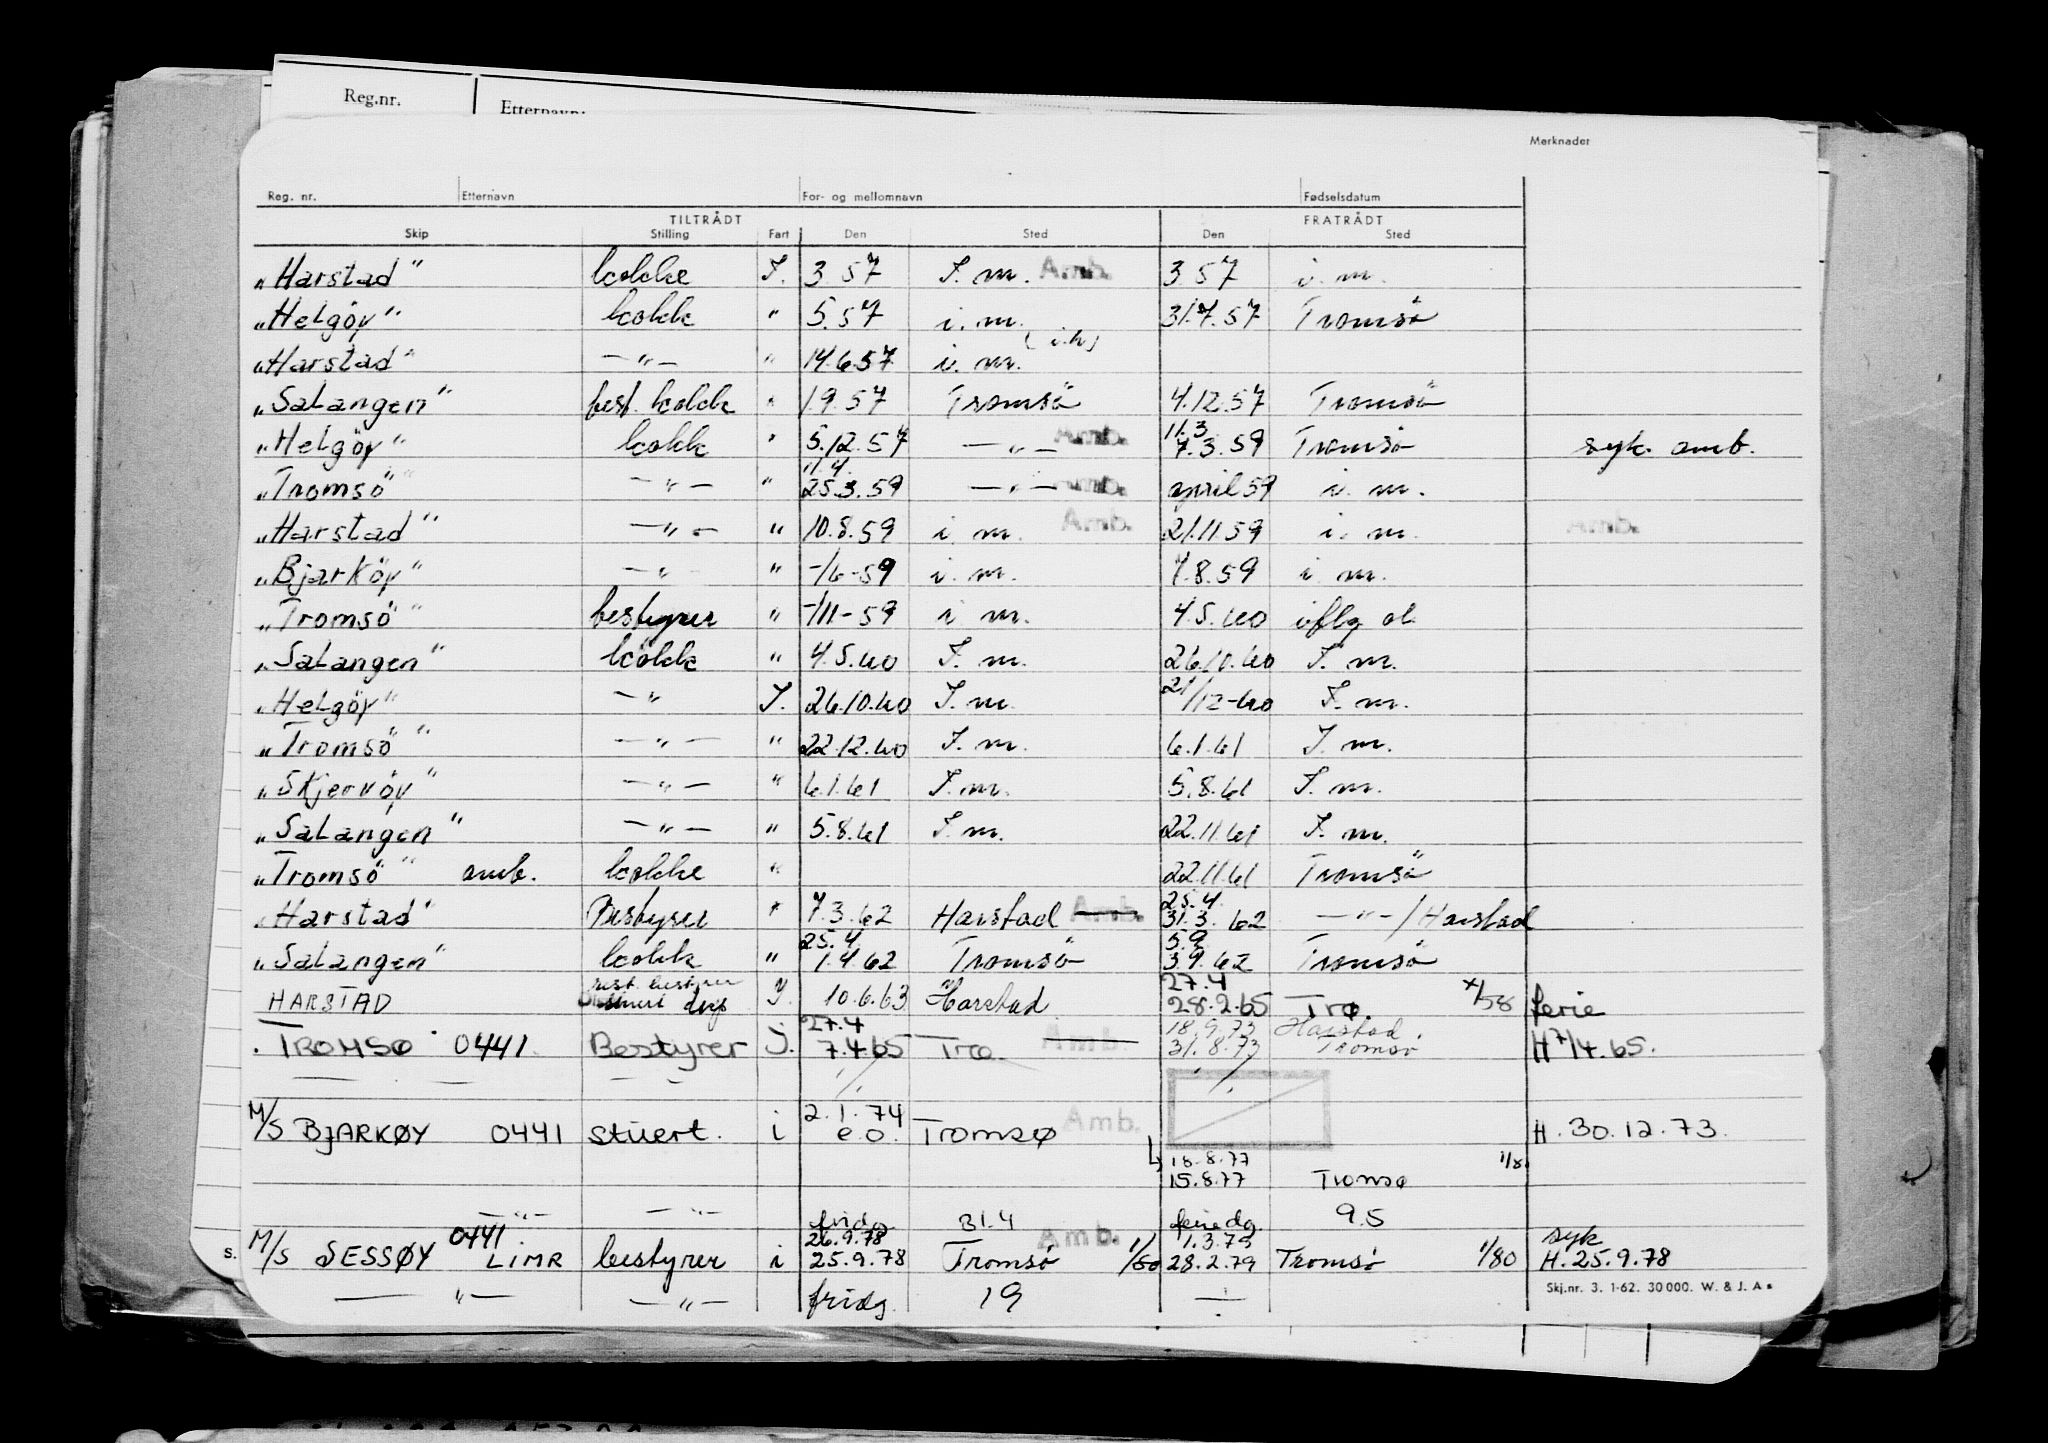 Reg.nr. Etternavn:
Merknader
Reg. nr. Etternavn For- og mellomnavn Fødselsdatum
TILTRÅDT FRATRÅDT
Skip Stilling Fart Den Sted Den Sted
„Harstad" kokke I. 3.57 I. m. Amb. 3.57 i. m.
„Helgöy" kokk " 5.57 i. m. 31.7.57 Tromsö
„Harstad" — „ — " 14.6.57 i. m. (i.h)
„Salangen" best. kokk " 1.9.57 Tromsö 4.12.57 Tromsö
„Helgöy" kokk " 5.12.57 — „ — Amb. 11.3 7.3.59 Tromsö syk. amb.
„Tromsö" — „ — " 11.4. 25.3.59 — „ — Amb. april 59 i. m.
„Harstad" — „ — " 10.8.59 i. m. Amb. 21.11.59 i. m. Amb.
„Bjarköy" — „ — " -/6-59 i. m. 7.8.59 i. m.
„Tromsö" bestyrer " -/11-59 i m. 4.5.60 iflg ol
„Salangen" kokk " 4.5.60 I. m. 26.10.60 I. m.
„Helgöy" — „ I. 26.10.60 I. m. 21/12-60 I. m.
„Tromsö" — „ — " 22.12.60 I. m. 6.1.61 I. m.
„Skjervöy" — „ — " 6.1.61 I. m. 5.8.61 I. m.
„Salangen" — „ — " 5.8.61 I. m. 22.11.61 I. m.
„Tromsö" amb. kokke " 22.11.61 Tromsö
„Harstad" Bestyrer " 7.3.62 Harstad Amb. 25.4. 31.3.62 — „ — / Harstad
„Salangen" kokk " 25.4. 1.4.62 Tromsö 5.9 3.9.62 Tromsö
HARSTAD rest. bestyrer I. 10.6.63 Harstad 27.4 28.2.65 Trø. x/58 ferie
TROMSØ 0441 Bestyrer I. 27.4 7.4.65 Trø. Amb. 18.9.73 Harstad 31.8.73 Tromsø H 7/4.65.
M/S BJARKØY 0441 stuert. i 2.1.74 e.o. Tromsø Amb. H.30.12.73.
18.8.77 1/80
15.8.77 Tromsø
— „ — — „ — fridg. 31.4 feriedg. 9.5
M/S SESSØY 0441 LIMR bestyrer i 26.9.78 25.9.78 Tromsø Amb. 1/80 1.3.79 28.2.79 Tromsø 1/80 syk H.25.9.78
s.
Skj.nr. 3. 1-62. 30 000. W. & J. As
— „ — — „ — fridg 19